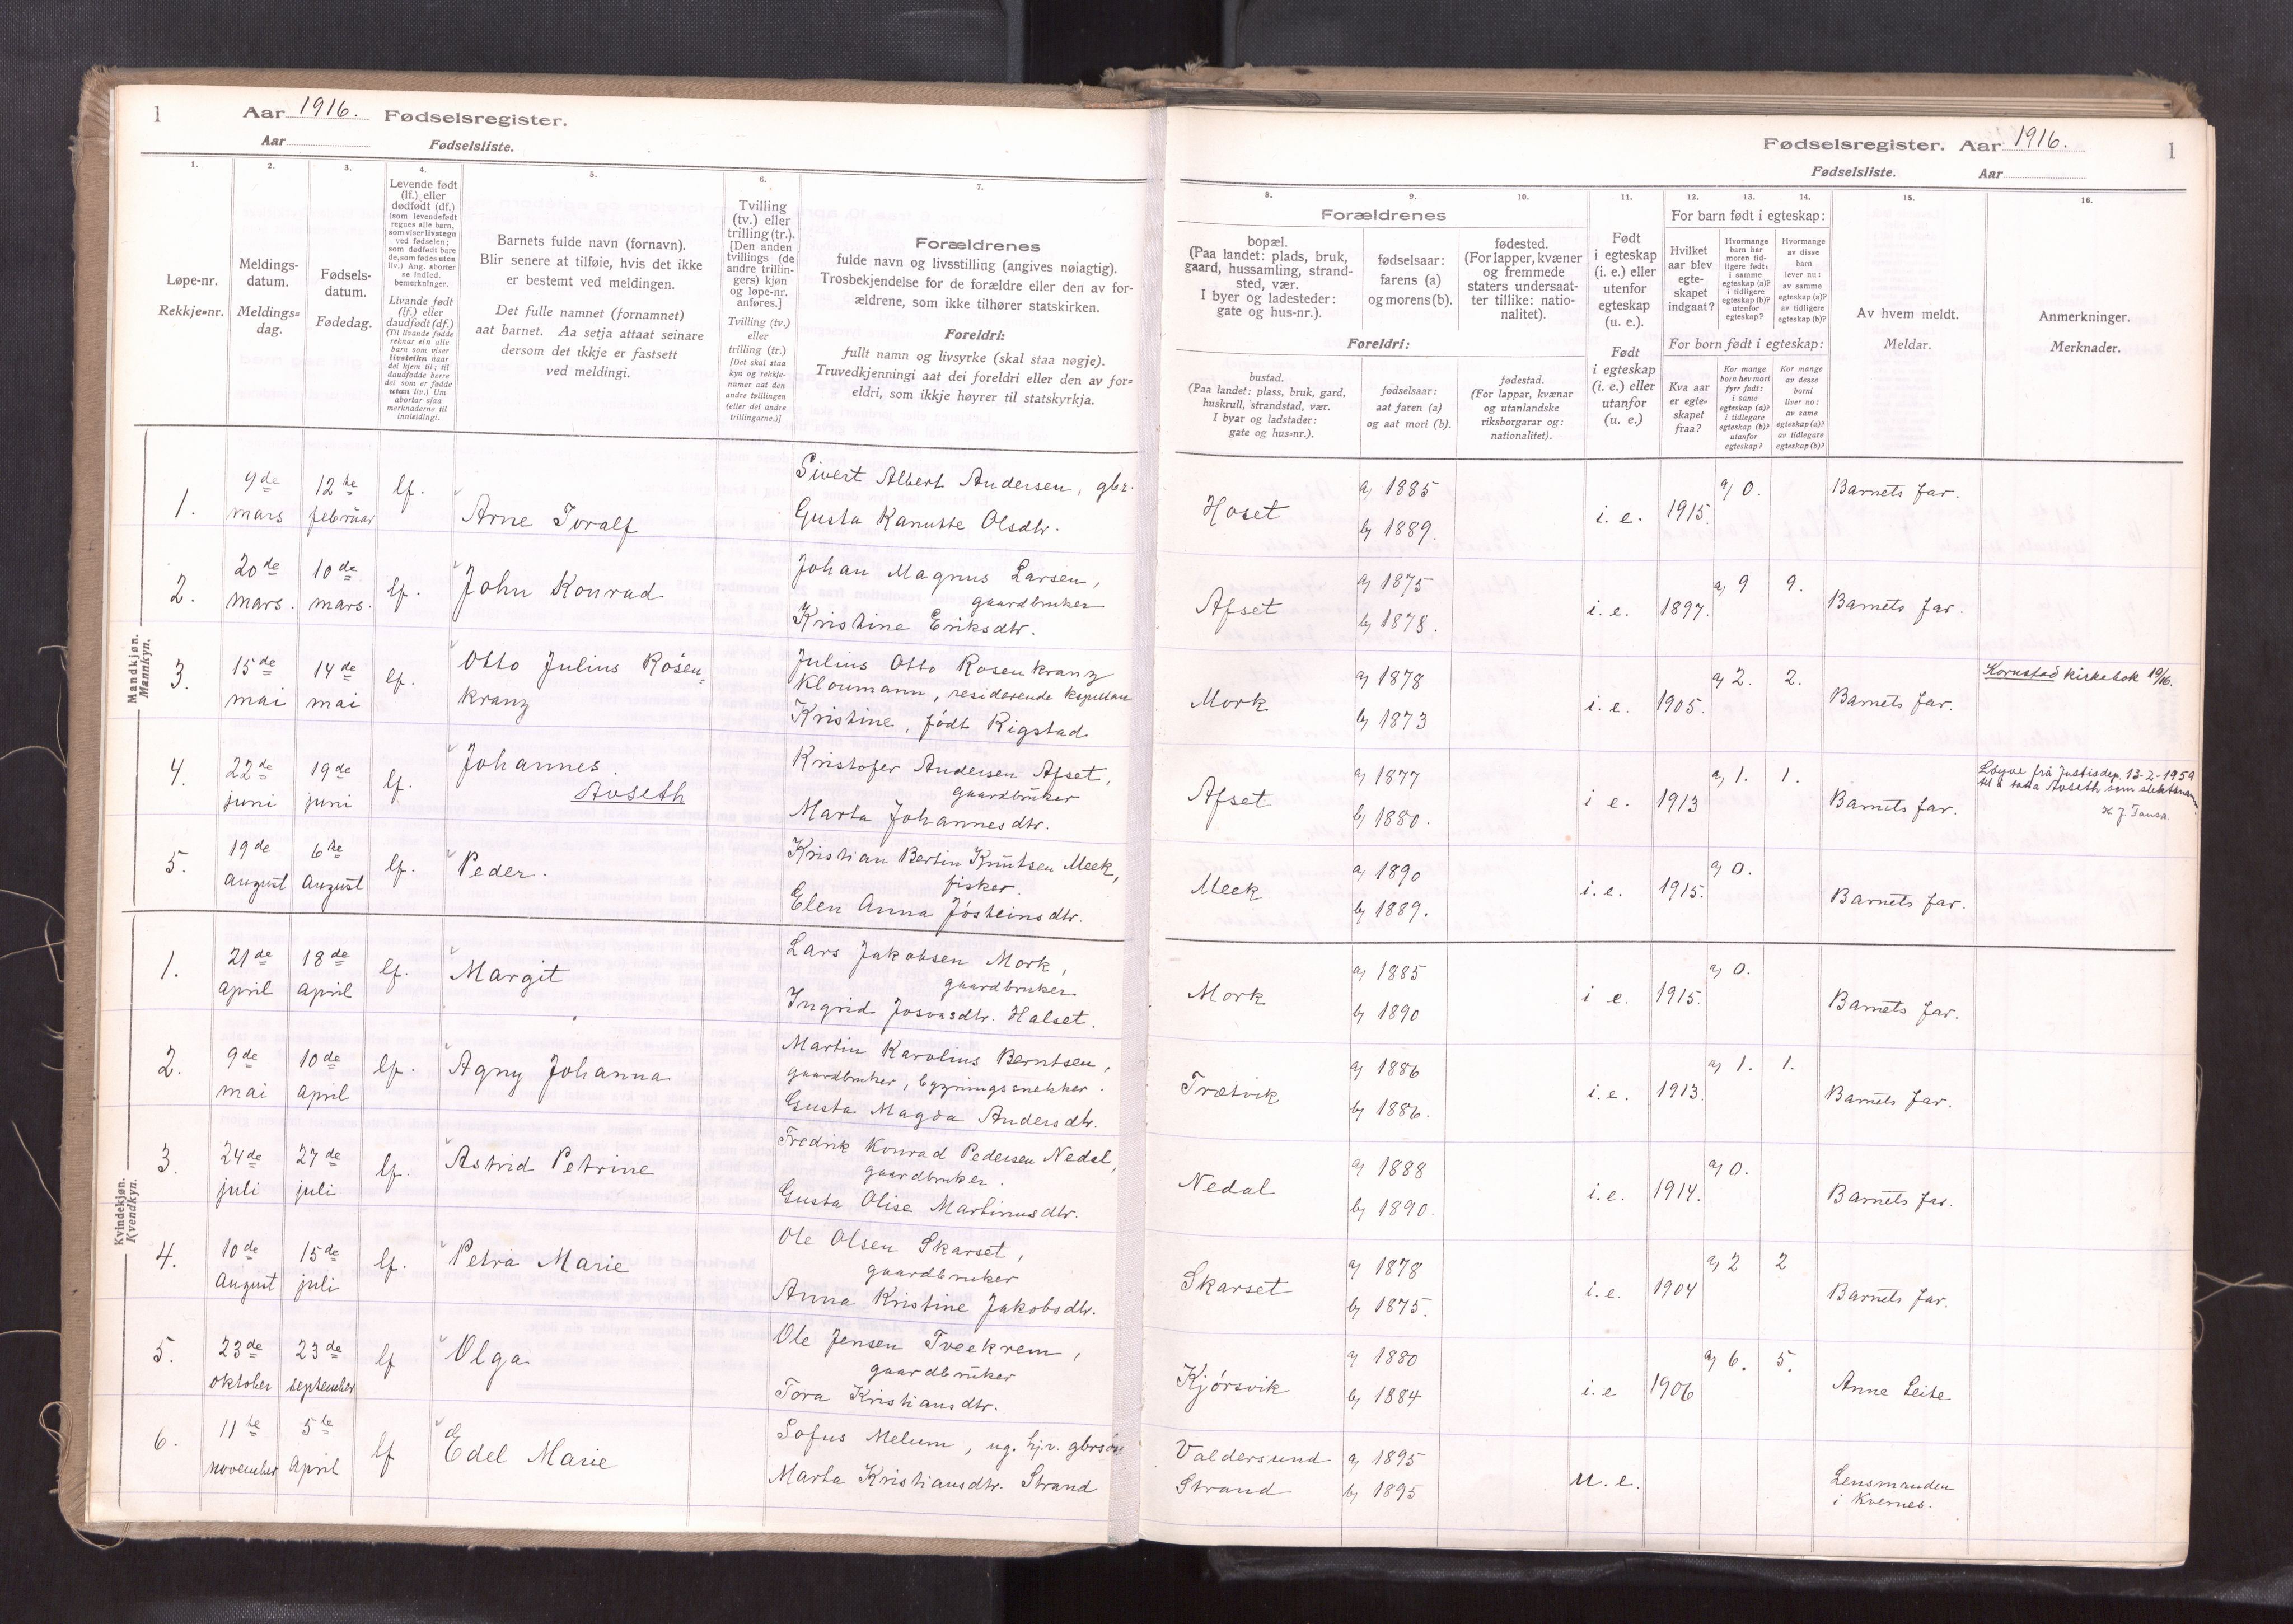 1
Aar 1916. Fødselsregister.
Aar Fødselsliste.
1.
2.
3.
4.
5.
6.
7.
Løpe-nr.
Rekkje-nr.
Meldings-
datum.
Meldings-
dag.
Fødsels-
datum.
Fødedag.
Levende født
(lf.) eller
dødfødt (df.)
(som levendefødt
regnes alle barn,
som viser livstegn
ved fødselen;
som dødfødt bare
de, som fødes uten
liv.) Ang. aborter
se indled.
bemerkninger.
Livande født
(lf.) eller
daudfødt (df.)
(Til livande fødde
reknar ein alle
barn som viser
livsteikn naar
dei kjem til; til
daudfødde berre
dei som er fødde
utan liv.) Um
abortar sjaa
merknaderne til
innleidingi.
Barnets fulde navn (fornavn).
Blir senere at tilføie, hvis det ikke
er bestemt ved meldingen.
Det fulle namnet (fornamnet)
aat barnet. Aa setja attaat seinare
dersom det ikkje er fastsett
ved meldingi.
Tvilling
(tv.) eller
trilling (tr.).
[Den anden
tvillings (de
andre trillin-
gers) kjøn
og løpe-nr.
anføres.]
Tvilling (tv.)
eller
trilling (tr.)
[Det skal staa
kyn og rekkje-
numer aat den
andre tvillingen
(eller dei andre
trillingarne.)]
Forældrenes
fulde navn og livsstilling (angives nøiagtig).
Trosbekjendelse for de forældre eller den av for-
ældrene, som ikke tilhører statskirken.
Foreldri:
fullt namn og livsyrke (skal staa nøgje).
Truvedkjenningi aat dei foreldri eller den av for-
eldri, som ikkje høyrer til statskyrkja.
Mandkjøn.
Mannkyn.
1. 9de mars 12te februar lf. Arne Toralf
Sivert Albert Andersen, gbr.
Gusta Kanutte Olsdtr.
2. 20de mars. 10de mars. lf. John Konrad
Johan Magnus Larsen,
gaardbruker
Kristine Eriksdtr.
3. 15de mai 14de mai lf. Otto Julius Rosen-
kranz
Julius Otto Rosenkranz
Kloumann, residerende kapellan
Kristine, født Rigstad
4. 22de juni 19de juni lf. Johannes.
Avseth
Kristofer Andersen Afset,
gaardbruker
Marta Johannesdtr.
5. 19de august 6te august lf. Peder.
Kristian Bertin Knutsen Meek,
fisker.
Elen Anna Jósteinsdtr.
Kvindekjøn.
Kvendkyn.
1. 21de april 18de april lf. Margit
Lars Jakobsen Mork,
gaardbruker
Ingrid Josvasdtr. Halset.
2. 9de mai 10de april lf. Agny Johanna
Martin Karolius Berntsen,
gaardbruker, bygningssnekker.
Gusta Magda Andersdtr.
3. 24de juli 27de juli lf. Astrid Petrine
Fredrik Konrad Pedersen Nedal,
gaardbruker.
Gusta Olise Martinusdtr.
4. 10de august 15de juli lf. Petra Marie
Ole Olsen Skarset,
gaardbruker
Anna Kristine Jakobsdtr.
5. 23de oktober 23de september lf Olga
Ole Jensen Tveekrem,
gaardbruker
Tora Kristiansdtr.
6. 11te november 5te april lf Edel Marie
Sofus Melum, ug. hj.v. gbrsøn
Marta Kristiansdtr. Strand
Fødselsregister. Aar 1916.
1
Fødselsliste. Aar
8.
9.
10.
11.
12.
13.
14.
15.
16.
Forældrenes
bopæl.
(Paa landet: plads, bruk,
gaard, hussamling, strand-
sted, vær.
I byer og ladesteder:
gate og hus-nr.).
fødselsaar:
farens (a)
og morens (b).
fødested.
(For lapper, kvæner
og fremmede
staters undersaat-
ter tillike: natio-
nalitet).
Foreldri:
bustad.
(Paa landet: plass, bruk, gard,
huskrull, strandstad, vær.
I byar og ladstader:
gate og hus-nr.).
fødselsaar:
aat faren (a)
og aat mori (b).
fødestad.
(For lappar, kvænar
og utanlandske
riksborgarar og:
nationalitet).
Født
i egteskap
(i. e.) eller
utenfor
egteskap
(u. e.).
Født
i egteskap
(i. e.) eller
utanfor
(u. e.)
For barn født i egteskap:
Hvilket
aar blev
egte-
skapet
indgaat?
Hvormange
barn har
moren tid-
ligere født:
i samme
egteskap (a)?
i tidligere
egteskap (b)?
utenfor
egteskap?
Hvormange
av disse
barn
lever nu:
av samme
egteskap (a)?
av tidligere
egteskap (b)?
For born født i egteskap:
Kva aar
er egte-
skapet
fraa?
Kor mange
born hev mori
fyrr født:
i same
egteskap (a)?
i tidlegare
egteskap (b)?
utanfor
egteskap?
Kor mange
av desse
borni
liver no:
av same
egteskap (a)?
av tidlegare
egteskap (b)?
Av hvem meldt.
Meldar.
Anmerkninger.
Merknader.
Hoset a) 1885 b) 1889. i. e. 1915. a) 0. Barnets far.
Afset a) 1875 b) 1878. i. e. 1897. a) 9 9. Barnets far.
Mork a) 1878 b) 1873 i. e. 1905. a) 2. 2. Barnets far. Kornstad kirkebok 19/16.
Afset a) 1877 b) 1880. i e. 1913 a) 1. 1. Barnets far.
Løyve frå Justisdep. 13-2-1959
til å taka Avseth som slektsnamn.
Meek a) 1890 b) 1889. i. e. 1915. a) 0. Barnets far.
Mork a) 1885 b) 1890 i e. 1915. a) 0. Barnets far.
Trætvik a) 1886 b) 1886. i. e. 1913. a) 1. 1. Barnets far.
Nedal a) 1888 b) 1890. i. e. 1914. a) 0. Barnets far.
Skarset a) 1878 b) 1875. i. e. 1904 a) 2 2 Barnets far.
Kjórsvik a) 1880 b) 1884 i. e 1906 a) 6. 5. Anne Leite
Valdersund a) 1895
Strand b) 1895 u. e. Lensmanden
i Kvernes.